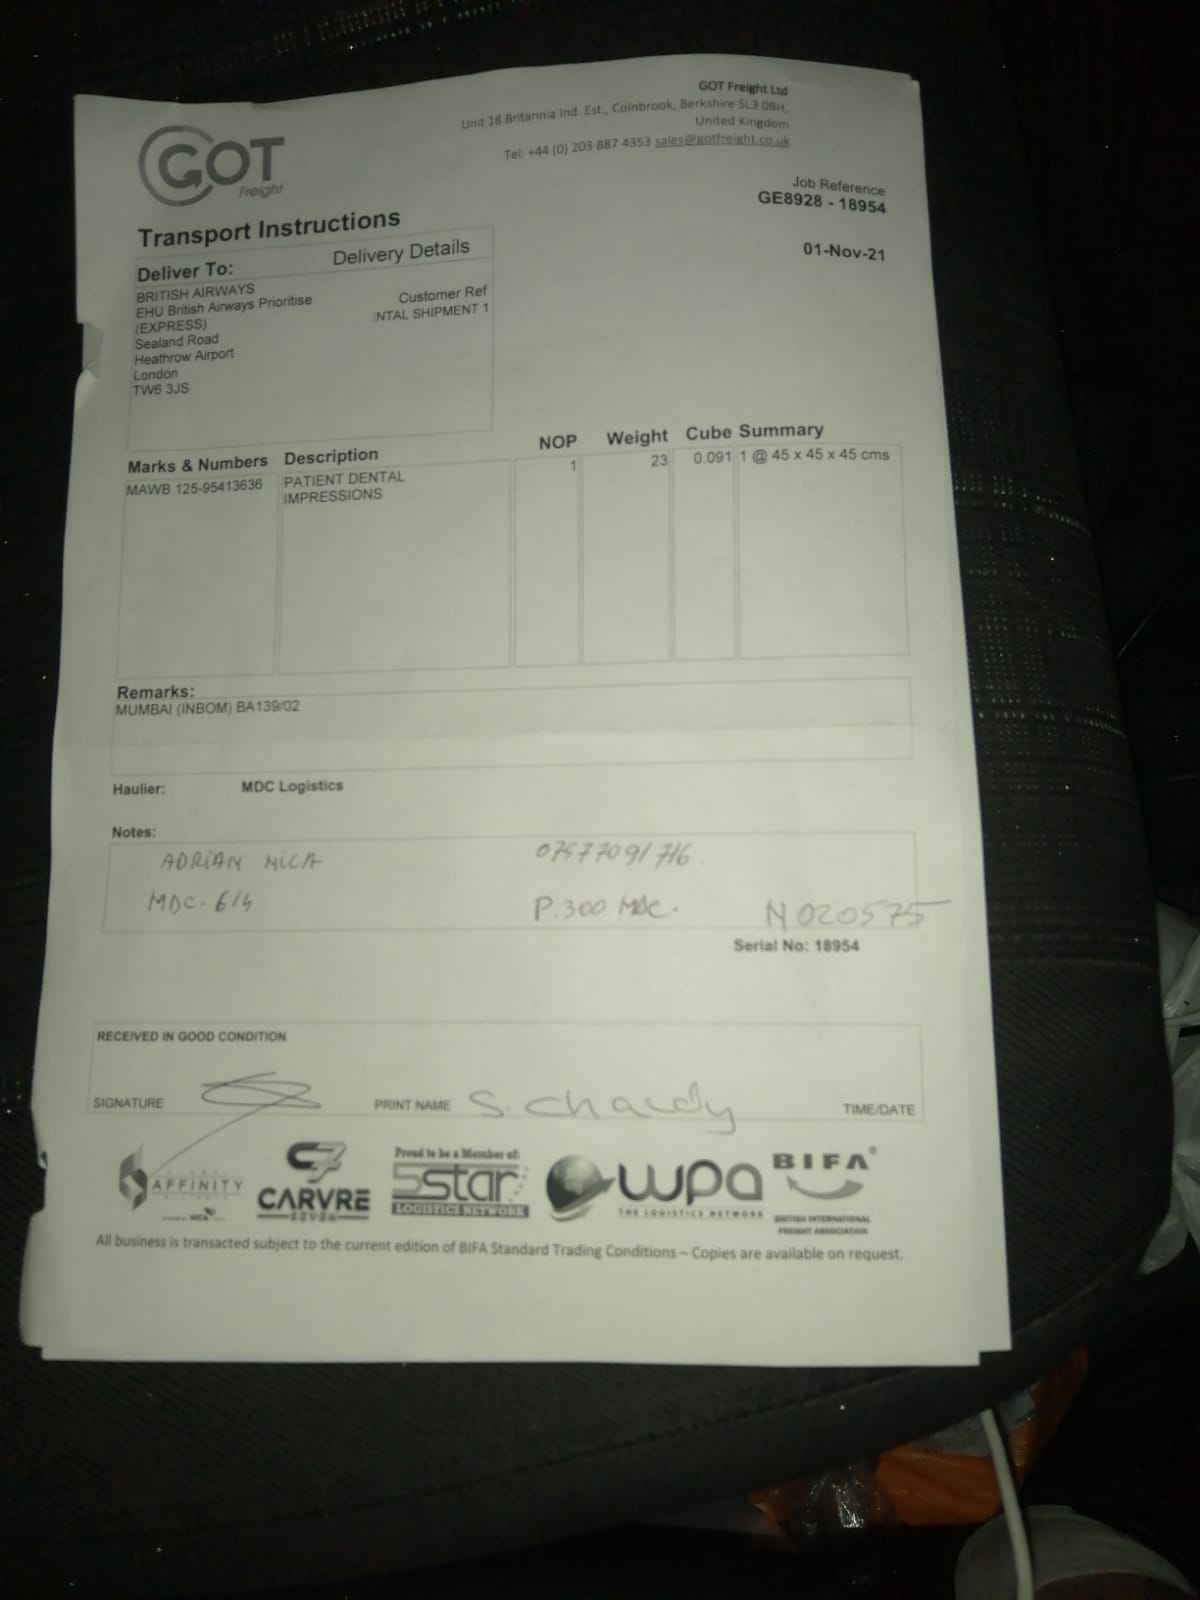 GOT Freight Ltd
Unit 18 Britannia Ind. Est., Colnbrook, Berkshire SL3 0BH,
United Kingdom
Tel: +44 (0) 203 887 4353 sales@gotfreight.co.uk
GOT
Freight
Job Reference
GE8928 - 18954
01-Nov-21
Transport Instructions
Deliver To: Delivery Details
BRITISH AIRWAYS
EHU British Airways Prioritise
(EXPRESS)
Sealand Road
Heathrow Airport
London
TW6 3JS
Customer Ref
NTAL SHIPMENT 1
Marks & Numbers Description NOP Weight Cube Summary
MAWB 125-95413636 PATIENT DENTAL 1 23 0.091 1 @ 45 x 45 x 45 cms
IMPRESSIONS
Remarks:
MUMBAI (INBOM) BA139/02
Haulier: MDC Logistics
Notes:
ADRIAN MICA 07577091716.
MDC. 614 P.300 MDC. N020575
Serial No: 18954
RECEIVED IN GOOD CONDITION
SIGNATURE PRINT NAME S. Chawdy TIME/DATE
AFFINITY
C7
CARVRE
SEVEN
Proud to be a Member of:
5star
LOGISTICS NETWORK
wpa
THE LOGISTICS NETWORK
BIFA®
BRITISH INTERNATIONAL
FREIGHT ASSOCIATION
All business is transacted subject to the current edition of BIFA Standard Trading Conditions – Copies are available on request.